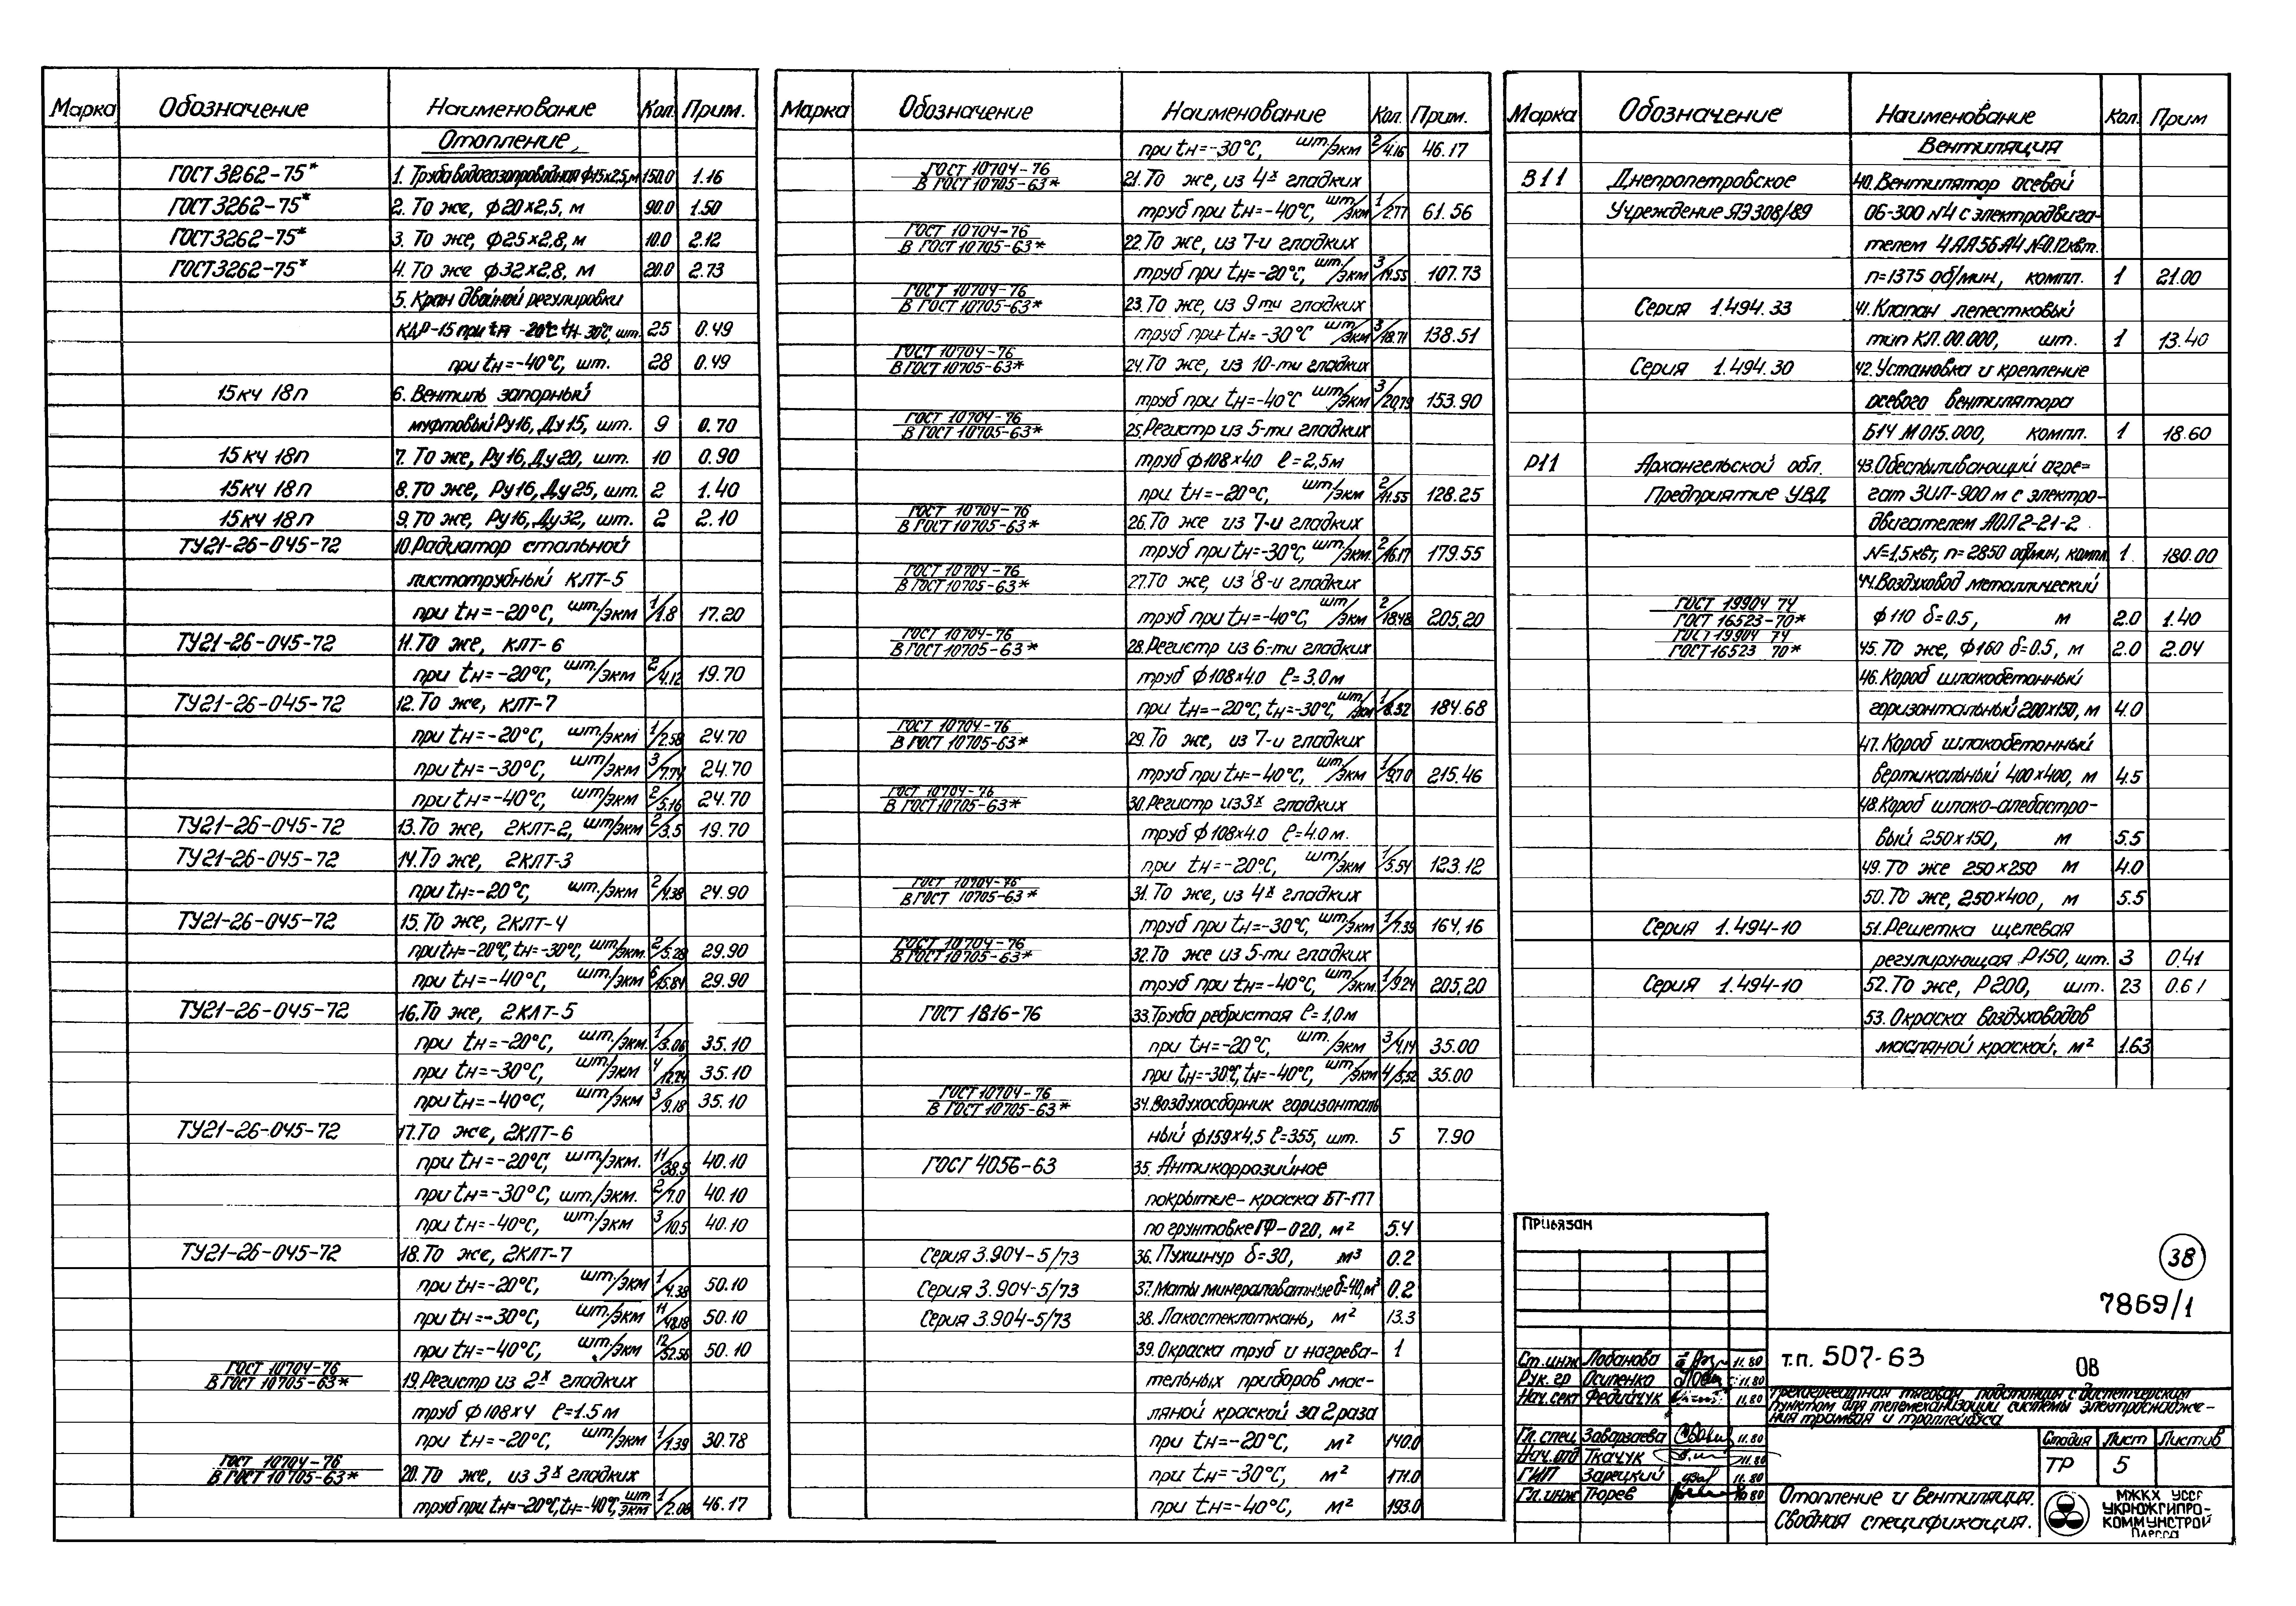 Марка Обозначение Наименование Кол. Прим.
Отопление,
ГОСТ 3262-75* 1. Труба водогазопроводная ф15х2,5, м 150.0 1.16
ГОСТ 3262-75* 2. То же, ф20×2,5, м 90.0 1.50
ГОСТ 3262-75* 3. То же, ф25×2,8, м 10.0 2.12
ГОСТ 3262-75* 4. То же ф32×2,8, м 20.0 2.73
5. Кран двойной регулировки
КДР-15 при tн -20°С tн-30°С, шт. 25 0.49
при tн=-40°С, шт. 28 0.49
15кч 18п 6. Вентиль запорный
муфтовый Ру16, Ду15, шт. 9 0.70
15кч 18п 7. То же, Ру16, Ду20, шт. 10 0.90
15кч 18п 8. То же, Ру16, Ду25, шт. 2 1.40
15кч 18п 9. То же, Ру16, Ду32, шт. 2 2.10
ТУ21-26-045-72 10. Радиатор стальной
листотрубный КЛТ-5
при tн=-20°С, шт./экм 1/1.8 17.20
ТУ21-26-045-72 11. То же, КЛТ-6
при tн=-20°С, шт./экм 2/4.12 19.70
ТУ21-26-045-72 12. То же, КЛТ-7
при tн=-20°С, шт/экм 1/2.58 24.70
при tн=-30°С, шт/экм 3/7.74 24.70
при tн=-40°С, шт/экм 2/5.16 24.70
ТУ21-26-045-72 13. То же, 2КЛТ-2, шт/экм 2/3.5 19.70
ТУ21-26-045-72 14. То же, 2КЛТ-3
при tн=-20°С, шт./экм 2/4.38 24.90
ТУ21-26-045-72 15. То же, 2КЛТ-4
при tн=-20°С, tн=-30°С, шт/экм. 2/5.28 29.90
при tн=-40°С, шт./экм 6/15.84 29.90
ТУ21-26-045-72 16. То же, 2КЛТ-5
при tн=-20°С, шт./экм. 1/3.06 35.10
при tн=-30°С, шт/экм 4/12.24 35.10
при tн=-40°С, шт/экм 3/9.18 35.10
ТУ21-26-045-72 17. То же, 2КЛТ-6
при tн=-20°С, шт/экм. 11/38.5 40.10
при tн=-30°С, шт./экм. 2/7.0 40.10
при tн=-40°С, шт/экм 3/10.5 40.10
ТУ21-26-045-72 18. То же, 2КЛТ-7
при tн=-20°С, шт/экм 1/4.38 50.10
при tн=-30°С, шт./экм 11/48.18 50.10
при tн=-40°С, шт/экм 12/52.56 50.10
ГОСТ 10704-76
В ГОСТ 10705-63* 19. Регистр из 2х гладких
труб ф108×4 ℓ=1.5м
при tн=-20°С, шт./экм 1/1.39 30.78
ГОСТ 10704-76
В ГОСТ 10705-63* 20. То же, из 3х гладких
труб при tн=-20°С, tн=-40°С, шт/экм 1/2.08 46.17
Марка Обозначение Наименование Кол. Прим.
при tн=-30°С, шт/экм 2/4.16 46.17
ГОСТ 10704-76
В ГОСТ 10705-63* 21. То же, из 4х гладких
труб при tн=-40°С, шт/экм 1/2.77 61.56
ГОСТ 10704-76
В ГОСТ 10705-63* 22. То же, из 7-и гладких
труб при tн=-20°С, шт./экм 3/14.55 107.73
ГОСТ 10704-76
В ГОСТ 10705-63* 23. То же, из 9ти гладких
труб при tн=-30°С шт/экм 3/18.71 138.51
ГОСТ 10704-76
В ГОСТ 10705-63* 24. То же, из 10-ти гладких
труб при tн=-40°С шт/экм 3/20,79 153.90
ГОСТ 10704-76
В ГОСТ 10705-63* 25. Регистр из 5-ти гладких
труб ф108×4.0 ℓ=2,5м
при tн=-20°С, шт/экм 2/11.55 128.25
ГОСТ 10704-76
В ГОСТ 10705-63* 26. То же из 7-и гладких
труб при tн=-30°С, шт/экм. 2/16.17 179.55
ГОСТ 10704-76
В ГОСТ 10705-63* 27. То же, из 8-и гладких
труб при tн=-40°С, шт/экм 2/18.48 205,20
ГОСТ 10704-76
В ГОСТ 10705-63* 28. Регистр из 6-ти гладких
труб ф108×4.0 ℓ=3.0м
при tн=-20°С, tн=-30°С, шт/экм 1/8.32 184.68
ГОСТ 10704-76
В ГОСТ 10705-63* 29. То же, из 7-и гладких
труб при tн=-40°С, шт/экм 1/9.70 215.46
ГОСТ 10704-76
В ГОСТ 10705-63* 30. Регистр из 3х гладких
труб ф108×4.0 ℓ=4.0м.
при tн=-20°С, шт/экм 1/5.54 123.12
ГОСТ 10704-76
В ГОСТ 10705-63* 31. То же, из 4х гладких
труб при tн=-30°С, шт/экм 1/7.39 164,16
ГОСТ 10704-76
В ГОСТ 10705-63* 32. То же из 5-ти гладких
труб при tн=-40°С, шт/экм. 1/9.24 205,20
ГОСТ 1816-76 33. Труба ребристая ℓ=1,0м
при tн=-20°С, шт./экм 3/4,14 35.00
при tн=-30°С, tн=-40°С, шт/экм 4/5,52 35.00
ГОСТ 10704-76
В ГОСТ 10705-63* 34. Воздухосборник горизонталь
ный ф159×4,5 ℓ=355, шт. 5 7.90
ГОСТ 4056-63 35. Антикоррозийное
покрытие-краска БТ-177
по грунтовке ГФ-020, м² 5.4
Серия 3.904-5/73 36. Пухшнур δ=30, м³ 0.2
Серия 3.904-5/73 37. Маты минераловатные δ=40, м³ 0.2
Серия 3.904-5/73 38. Лакостеклоткань, м² 13.3
39. Окраска труб и нагрева- 1
тельных приборов мас-
ляной краской за 2 раза
при tн=-20°С, м² 140.0
при tн=-30°С, м² 171.0
при tн=-40°С, м² 193.0
Марка Обозначение Наименование Кол. Прим
Вентиляция
В11 Днепропетровское 40. Вентилятор осевой
Учреждение ЯЭ308/89 06-300 №4 с электродвига-
телем 4АА56А4 N=0.12квт.
n=1375 об/мин, компл. 1 21.00
Серия 1.494.33 41. Клапан лепестковый
тип КЛ.00.000, шт. 1 13.40
Серия 1.494.30 42. Установка и крепление
осевого вентилятора
Б14 М015.000, компл. 1 18.60
Р11 Архангельской обл. 43. Обеспыливающий агре-
Предприятие УВД гат ЗИЛ-900м с электро-
двигателем АОЛ2-21-2
N=1,5квт, n=2850 об/мин, компл. 1. 180.00
44. Воздуховод металлический
ГОСТ 19904 74
ГОСТ 16523-70* ф110 δ=0.5, м 2.0 1.40
ГОСТ 19904 74
ГОСТ 16523 70* 45. То же, ф160 δ=0.5, м 2.0 2.04
46. Короб шлакобетонный
горизонтальный 200х150, м 4.0
47. Короб шлакобетонный
вертикальный 400х400, м 4.5
48. Короб шлако-алебастро-
вый 250х150, м 5.5
49. То же 250×250 м 4.0
50. То же, 250×400, м 5.5
Серия 1.494-10 51. Решетка щелевая
регулирующая Р150, шт. 3 0.41
Серия 1.494-10 52. То же, Р200, шт. 23 0.61
53. Окраска воздуховодов
масляной краской, м² 1.63
Привязан
38
7869/1
Ст. инж Лобанова 11.80
Рук. гр Осипенко 11.80
Нач. сект Федийчук 11.80
Гл. спец Заварзаева 11.80
Нач. отд Ткачук 11.80
ГИП Зарецкий 11.80
Гл. инж Тюрев 10.80
т.п. 507-63 ОВ
Трехагрегатная тяговая подстанция с диспетчерским
пунктом для телемеханизации системы электроснабже-
ния трамвая и троллейбуса
Стадия Лист Листов
ТР 5
Отопление и вентиляция.
Сводная спецификация.
МЖКХ УССР
УКРЮЖГИПРО-
КОММУНСТРОЙ
Одесса